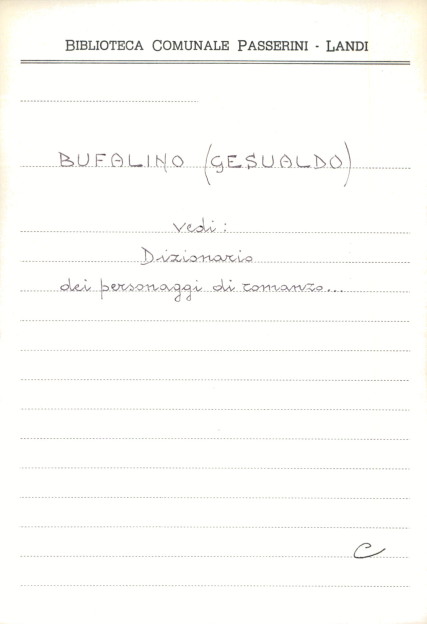 BIBLIOTECA COMUNALE PASSERINI - LANDI
BUFALINO (GESUALDO)
vedi:
Dizionario
dei personaggi di romanzo...
C